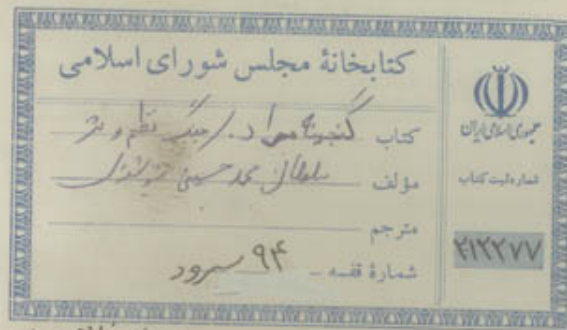 کتابخانهٔ مجلس شورای اسلامی
کتاب گنجینه مراد . / جنگ نظم و نثر
مؤلف سلطان محمد حسین
مترجم
شمارهٔ قفسه ۹۴ سرود
جمهوری اسلامی ایران
شماره ثبت کتاب
۲۱۲۲۷۷